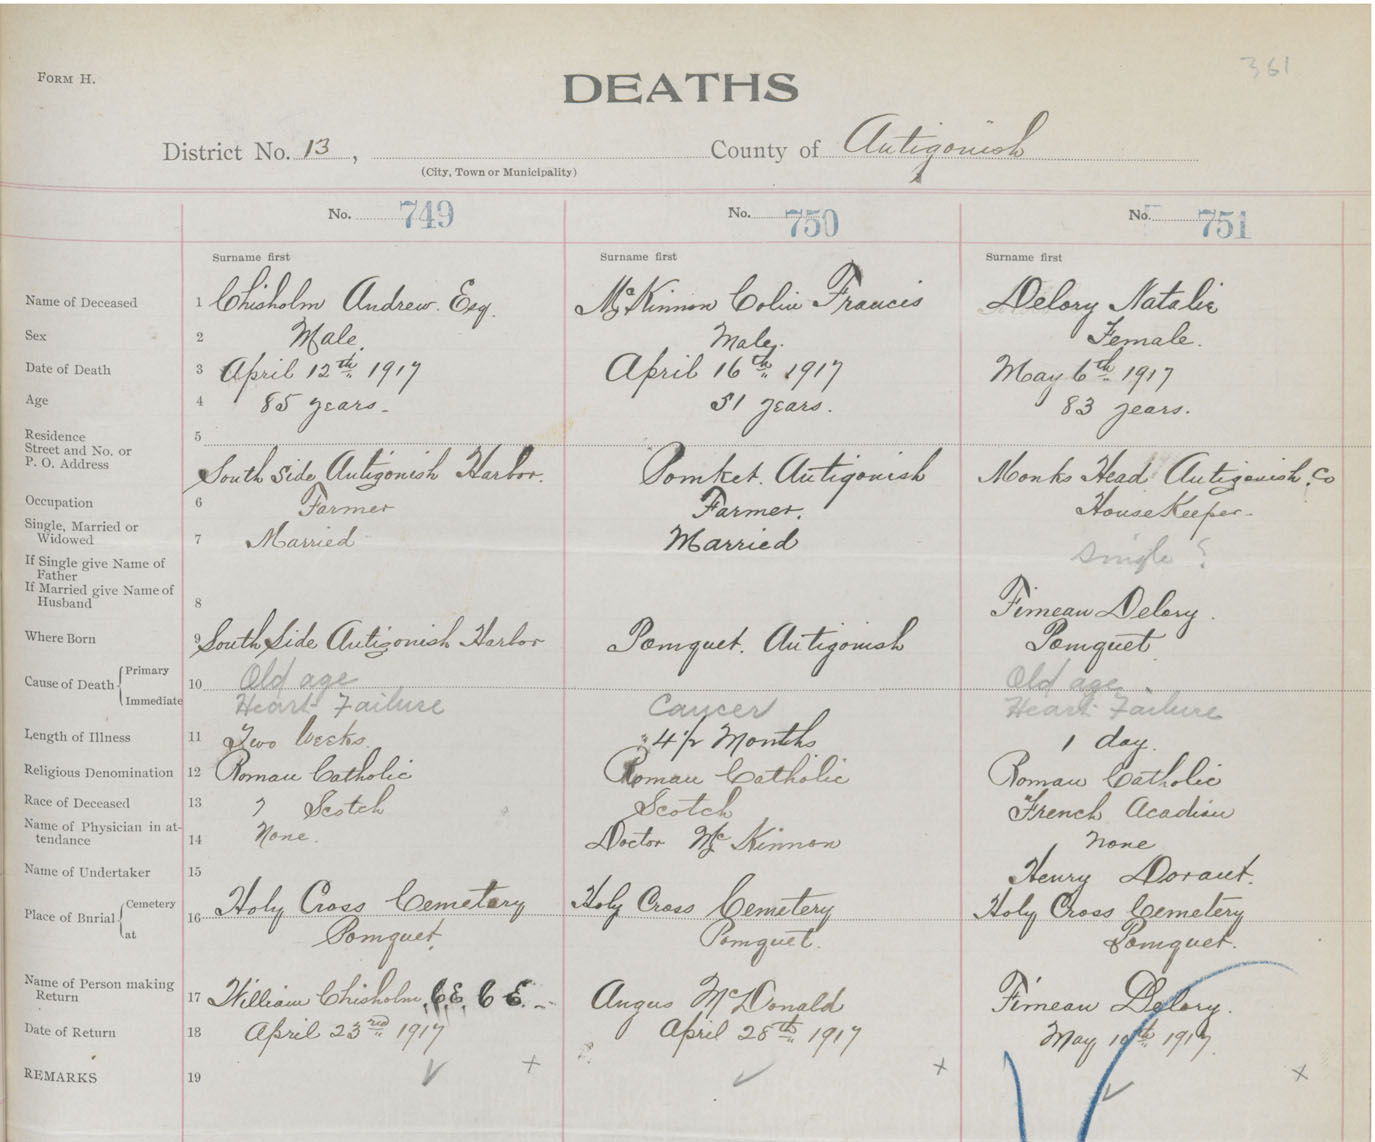 361
FORM H.
DEATHS
District No. 13, County of Antigonish
(City, Town or Municipality)
No. 749 No. 750 No. 751
Surname first Surname first Surname first
Name of Deceased 1 Chisholm Andrew. Esq. McKinnon Colin Francis Delory Natalie
Sex 2 Male. Male. Female.
Date of Death 3 April 12th 1917 April 16th 1917 May 6th 1917
Age 4 85 years. 51 years. 83 years.
Residence 5
Street and No. or
P. O. Address South Side Antigonish Harbor. Pomket. Antigonish Monks Head Antigonish. Co
Occupation 6 Farmer Farmer. House Keeper
Single, Married or
Widowed 7 Married Married Single ?
If Single give Name of
Father
If Married give Name of
Husband 8 Fimeau Delory.
Where Born 9 South Side Antigonish Harbor Pomquet. Antigonish Pomquet
Cause of Death Primary 10 Old age Old age
Immediate Heart Failure Cancer Heart Failure
Length of Illness 11 Two Weeks 4½ Months 1 day.
Religious Denomination 12 Roman Catholic Roman Catholic Roman Catholic
Race of Deceased 13 Scotch Scotch French Acadian
Name of Physician in at-
tendance 14 None. Doctor Mc Kinnon none
Name of Undertaker 15 Henry Dorant.
Place of Burial Cemetery 16 Holy Cross Cemetery Holy Cross Cemetery Holy Cross Cemetery
at Pomquet. Pomquet. Pomquet.
Name of Person making
Return 17 William Chisholm, C.E. C E. Angus McDonald Fimeau Delory.
Date of Return 18 April 23rd 1917 April 28th 1917 May 10th 1917
REMARKS 19